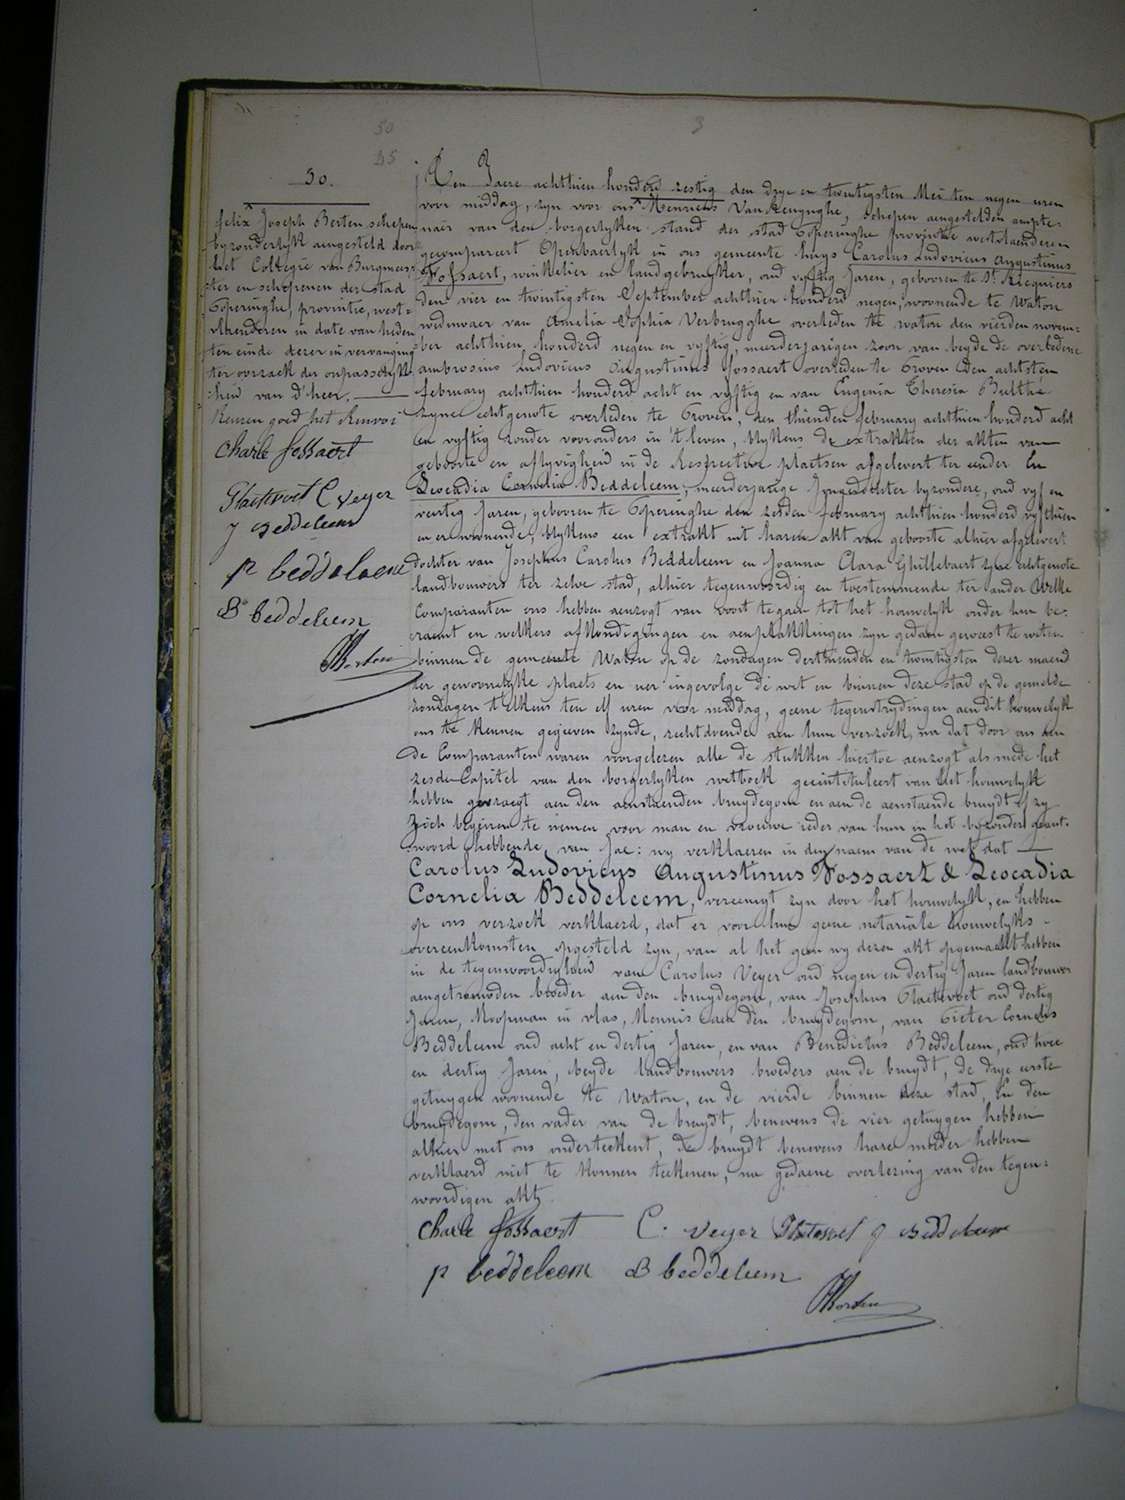 30
3
25
30.
felix Joseph Berten schepen
byzonderlyk aengesteld door
het Collegie van Burgmees=
ter en schepenen der stad
Poperinghe, provintie, west=
vlaenderen in date van heden
ten einde dezer in vervanging
ter oorzaek der onpasselyk
heid van d'heer.
Kennen goed het Renvoi
Charle fossaert
Plaetevoet C veyer
J Beddeleem
p beddeleem
B beddeleem
Berten
Den Jaere achthien honderd zestig den drye en twintigsten Mei ten negen uren
voor middag, zyn voor ons Henricus Van Renynghe, schepen aengestelden ampte=
naer van den borgerlyken stand der stad Poperinghe provintie westvlaenderen
gecompareert Openbaerlyk in ons gemeente huys Carolus Ludovicus Augustinus
Fossaert, winkelier en landgebruyker, oud vyftig Jaren, gebooren te St Ricquiers
den vier en twintigsten September achthien honderd negen, woonende te Watou
wedenaer van Amelia Sophia Verbrugghe overleden te watou den vierden novem=
ber achthien honderd negen en vyftig, meerderjarigen zoon van beyde de overledene
ambrosius Ludovicus Augustinus fossaert overleden te Proven den achtsten
february achthien honderd acht en vyftig en van Eugenia Theresia Bulthé
zyne echtgenote overleden te Proven, den thienden february achthien honderd acht
en vyftig zonder voorouders in 't leven, blykens de extrakten der akten van
geboorte en aflyvigheid in de Respective plaetsen afgelevert ter eender En
Leocadia Cornelia Beddeleem, meerderjarige Jongedochter byzondere, oud vyf en
veertig Jaren, gebooren te Poperinghe den zesden february achthien honderd vyfthien
en er woonende, blykens een extrakt uit haren akt van geboorte alhier afgelevert
dochter van Josephus Carolus Beddeleem en Joanna Clara Ghillebaert zyne echtgenote
landbouwers ter zelve stad, alhier tegenwoordig en toestemmende ter ander Welke
Comparanten ons hebben aenzogt van voort te gaen tot het houwelyk onder hun be=
raemt en welkers afkondigingen en aenplakkingen zyn gedaen geweest te weten
binnen de gemeente Watou op de zondagen derthienden en twintigsten dezer maend
ter gewoonelyke plaets en uer ingevolge de wet en binnen deze stad op de gemelde
zondagen telkens ten elf uren voor middag, geene tegenstrydingen aen dit houwelyk
ons te kennen gegeven zynde, rechtdoende aen hun verzoek, na dat door ons aen
de Comparanten waren voorgelezen alle de stukken hiertoe aenzogt als mede het
zesde Capitel van den borgerlyken wetboek geeintituleert van het houwelyk
hebben gevraegt aen den aenstaenden bruydegom en aen de aenstaende bruydt of zy
zich begeiren te nemen voor man en vrouwe ieder van hun in het byzonder geant=
woord hebbende, van Jae: wy verklaeren in den naem van de wet dat
Carolus Ludovicus Augustinus Fossaert & Leocadia
Cornelia Beddeleem, vereenigt zyn door het houwelyk, en hebben
op ons verzoek verklaerd, dat er voor hun geene notariale houwelyks-
overeenkomsten opgesteld zyn, van al het geen wy dezen akt opgemaekt hebben
in de tegenwoordigheid van Carolus Veyer oud negen en dertig Jaren landbouwer
aengetrouwden broeder aen den bruydegom, van Josephus Plaetevoet oud dertig
Jaren, Koopman in vlas, Kennis aen den bruydegom, van Pieter Cornelis
Beddeleem oud acht en dertig Jaren, en van Benedictus Beddeleem, oud twee
en dertig Jaren, beyde landbouwers broeders aen de bruydt, de drye eerste
getuygen woonende te Watou, en de vierde binnen deze stad, En den
bruydegom, den vader van de bruydt, benevens de vier getuygen hebben
alhier met ons onderteekent, de bruydt benevens hare moeder hebben
verklaerd niet te konnen teekenen, na gedaene overlezing van den tegen=
woordigen akt
Charle fossaert C. veyer Plaetevoet J Beddeleem
p beddeleem B beddeleem
Berten